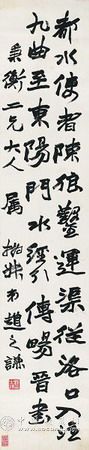 都水使者陳狼鑿運渠從洛口入注
九曲至東陽門水經引傅暢晉書
秉衡二兄大人屬 撝叔弟趙之謙